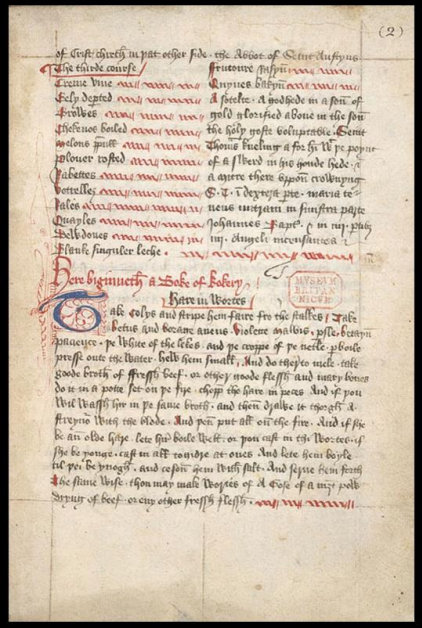 (2)
of Crist chirch in þat other side · the Abbot of Seint Austyns
The thirde course
Creme vine
Gely deperted
Growes
Chekenes boiled
Plouer rosted
Rabettes
Quayles
Dewdoues
Blank singuler leche ·
ffrutoure
Quynes bakyn
A sotelte · A godhede in a son of
gold glorified aboue in the son
the holy goste voluptable · Seint
Thomas kneling a for him wt þe poynt
of a swerd in his honde hede ·
a mitre there vppon crowning
S · T · i dextera parte · maria te
nens in sinistra parte
Johannes Bapt · in iiij partibus
iiij · Angeli incensantes
Here beginneth a Boke of Kokery
Hare in Wortes
MVSEVM BRITANNICVM
Take Colys and stripe hem faire fro the stalkes · Take
betus and borage auens · Violette malvis · psle · betayn
pacience · þe white of the lekes · and þe croppe of þe netle · pboile
presse oute the water · hew hem small · And do therto mele · take
goode broth of ffressh beef · or other goode flessh and mary bones
do it in a potte set on þe fire · chopp the hare in peces And if þou
wil wassh hir in þe same broth · and then drawe it thorgh A
streynour with the blode · And þen put all on the fire · And if she
be an olde hare · lete hir boile well · or þou cast in thi Wortes · if
she be yonge · cast in all togidre at ones · And lete hem boyle
til þei be ynogh · and ceson hem with salt · And serue hem forth
The same wise · thou may make Wortes of A Gose of a niȝt pow
dryng of beef · or eny other fressh flessh ·